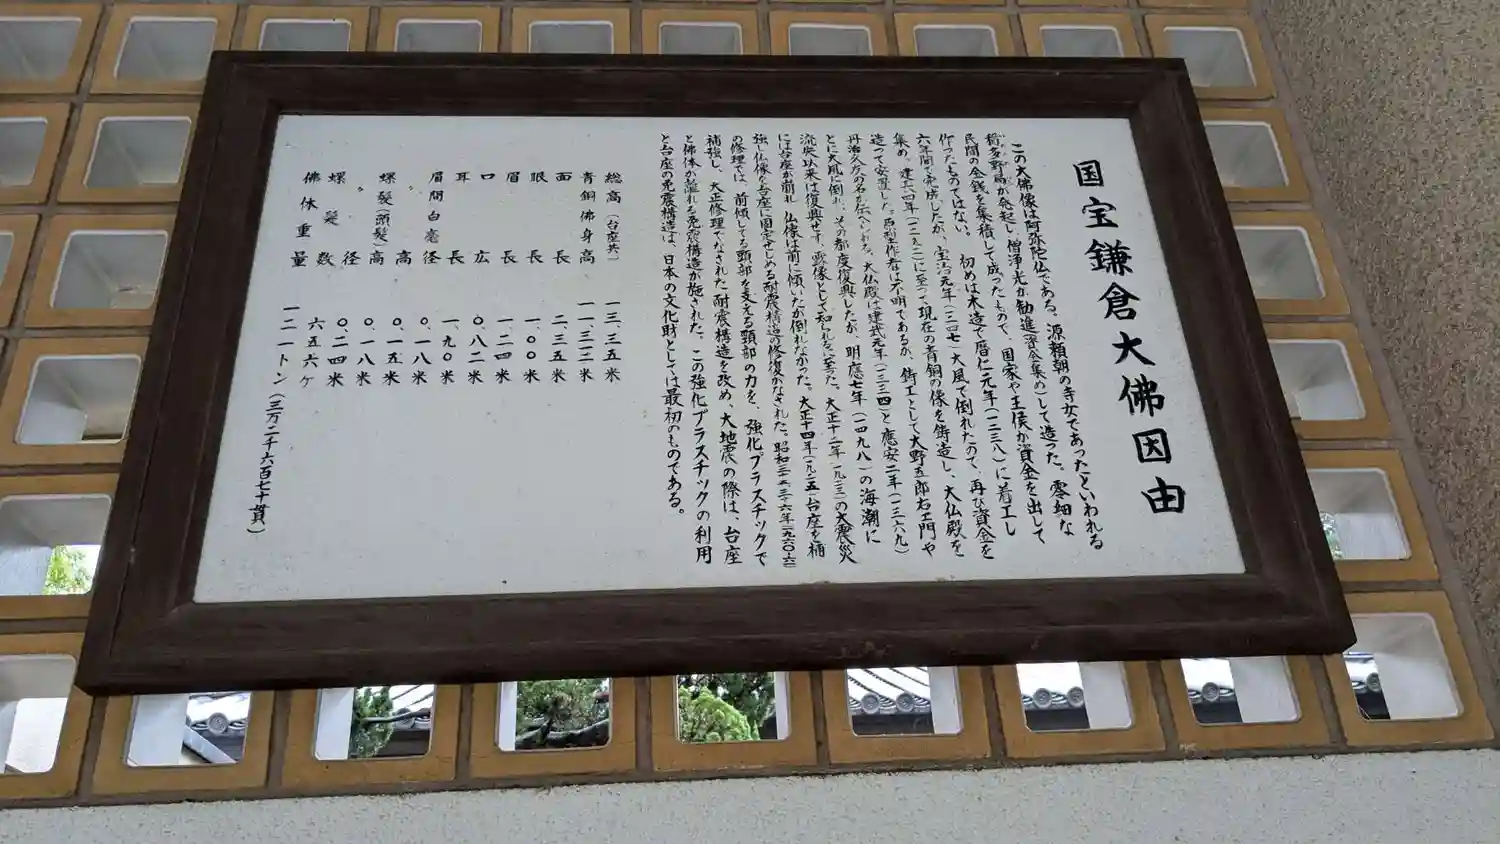 国宝鎌倉大佛因由
この大佛像は阿弥陀仏である。源頼朝の侍女であったといわれる
稲多野局が発起し、僧浄光が勧進(資金集め)して造った。零細な
民間の金銭を集積して成ったもので、国家や王侯が資金を出して
作ったものではない。初めは木造で暦仁元年(一二三八)に着工し
六年間で完成したが、宝治元年(一二四七)大風で倒れたので、再び資金を
集め、建長四年(一二五二)に至って、現在の青銅の像を鋳造し、大仏殿を
造って安置した。原型作者は不明であるが、鋳工として大野五郎右エ門や
丹治久友の名が伝へられる。大仏殿は建武元年(一三三四)と應安二年(一三六九)
とに大風に倒れ、その都度復興したが、明應七年(一四九八)の海潮に
流失以来は復興せず、露像として知られるに至った。大正十二年(一九二三)の大震災
には台座が崩れ、仏像は前に傾いたが倒れなかった。大正十四年(一九二五)台座を補
強し仏像を台座に固定せしめる耐震構造の修復がなされた。昭和三五・三六年(一九六〇・六一)
の修理では、前傾してる頭部を支える頸部の力を、強化プラスチックで
補強し、大正修理でなされた耐震構造を改め、大地震の際は、台座
と佛体が離れる免震構造が施された。この強化プラスチックの利用
と台座の免震構造は、日本の文化財としては最初のものである。
総高(台座共) 一三、三五米
青銅佛身高 一一、三一二米
面長 二、三五米
眼長 一、〇〇米
眉長 一、二四米
口広 〇、八二米
耳長 一、九〇米
眉間白毫径 〇、一八米
〃高 〇、一五米
螺髪(頭髪)高 〇、一八米
〃径 〇、二四米
螺髪数 六五六ケ
佛体重量 一二一トン(三万二千六百七十貫)